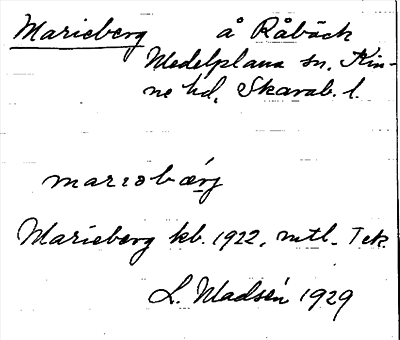 Marieberg å Råbäck
Medelplana sn. Kin-
ne hd. Skarab. l.
marıəbærj
Marieberg kb. 1922, mtl. Tek.
L. Madsén 1929